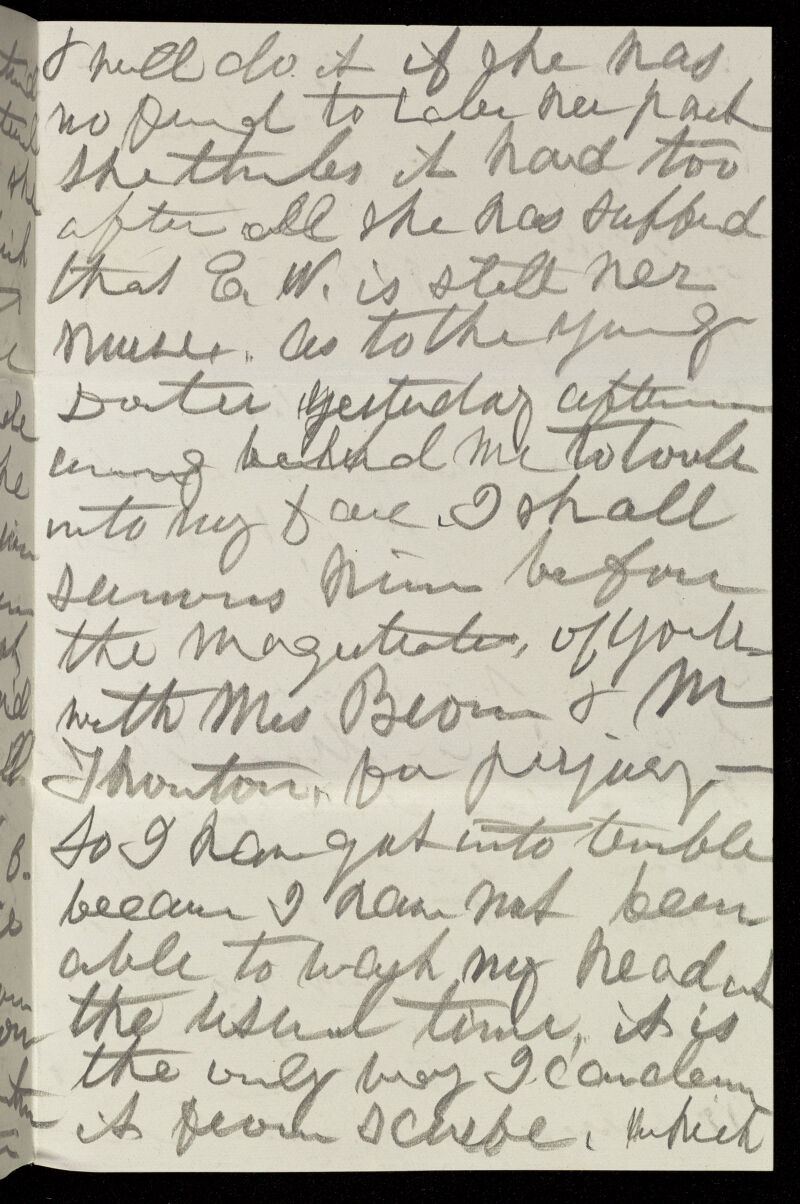 & will do it if she has
no friend to take her part
she thinks it hard too
after all she has suffered
that E. W. is still her
nurse. As to the young
Doctor yesterday afternoon
coming behind me to look
into my face. I shall
summons him before
the Magistrates, of York
with Mrs Brown & Mr
Thornton, for perjury —
So I have got into
because I have not been
able to wash my head at
the usual time, it is
the only way I can
it from scurf, which